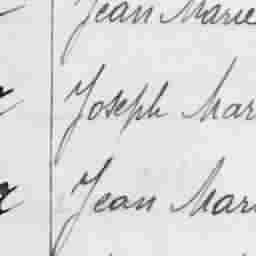 Jean Marie
Joseph Mar
Jean Mari